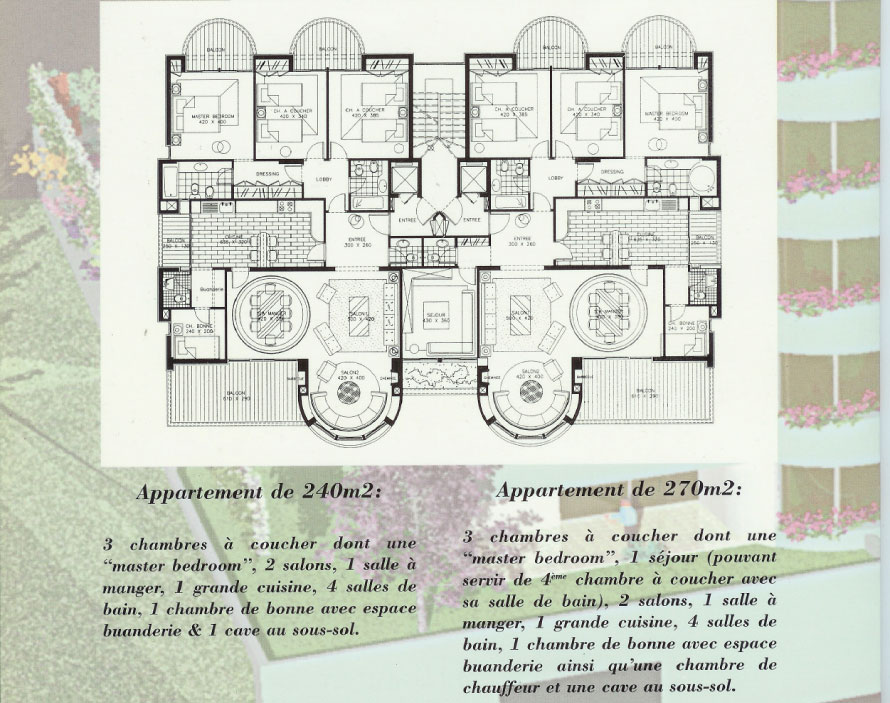 BALCON
BALCON
BALCON
BALCON
MASTER BEDROOM
420 X 400
CH. A COUCHER
420 X 340
CH. A COUCHER
420 X 385
CH. A COUCHER
420 X 385
CH. A COUCHER
420 X 340
MASTER BEDROOM
420 X 400
DRESSING
LOBBY
LOBBY
DRESSING
ENTREE
ENTREE
BALCON
CUISINE
ENTREE
300 X 260
ENTREE
300 X 260
CUISINE
BALCON
Buanderie
CH. BONNE
240 X 200
S.A MANGER
SALON1
500 X 420
SEJOUR
430 X 360
SALON1
500 X 420
S.A MANGER
CH. BONNE
240 X 200
SALON2
420 X 400
SALON2
420 X 400
BALCON
610 X 290
BALCON
610 X 290
Appartement de 240m2:
3 chambres à coucher dont une
“master bedroom”, 2 salons, 1 salle à
manger, 1 grande cuisine, 4 salles de
bain, 1 chambre de bonne avec espace
buanderie & 1 cave au sous-sol.
Appartement de 270m2:
3 chambres à coucher dont une
“master bedroom”, 1 séjour (pouvant
servir de 4ème chambre à coucher avec
sa salle de bain), 2 salons, 1 salle à
manger, 1 grande cuisine, 4 salles de
bain, 1 chambre de bonne avec espace
buanderie ainsi qu’une chambre de
chauffeur et une cave au sous-sol.